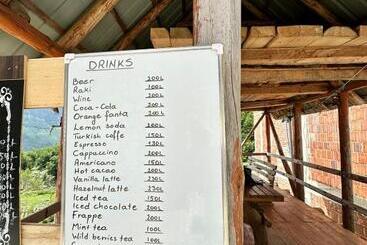 DRINKS
Beer 200L
Raki 100L
Wine 200L
Coca - Cola 200L
Orange fanta 200L
Lemon soda 200L
Turkish coffe 150L
Espresso 130L
Cappuccino 200L
Americano 150L
Hot cacao 200L
Vanilla latte 230L
Hazelnut latte 230L
Iced tea 150L
Iced chocolate 200L
Frappe 200L
Mint tea 100L
Wild berries tea 100L